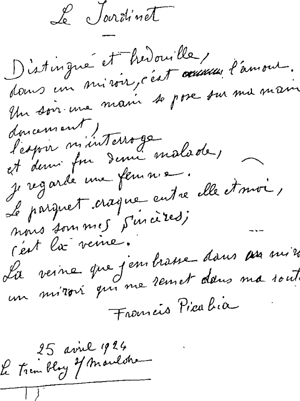 Le Jardinet
Distingué et bredouille,
dans un miroir, c'est l'amour.
Un soir une main se pose sur ma main
doucement,
l'espoir m'interroge
et demi fou demi malade,
je regarde une femme.
Le parquet craque entre elle et moi,
nous sommes sincères;
c'est la veine.
La veine que j'embrasse dans un miro
un miroir qui me remet dans ma rout
Francis Picabia
25 avril 1924
Le Tremblay s/ Mauldre